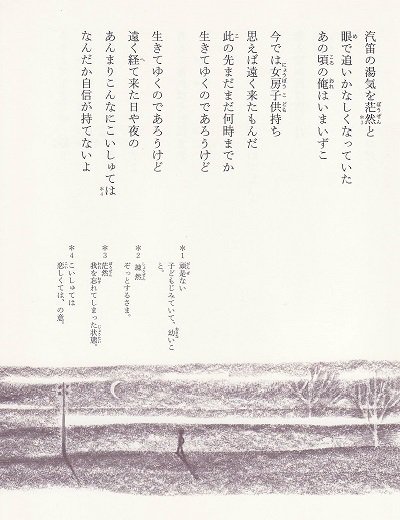 汽笛の湯気を茫然と
眼で追いかなしくなっていた
あの頃の俺はいまいずこ
今では女房子供持ち
思えば遠く来たもんだ
此の先まだまだ何時までか
生きてゆくのであろうけど
生きてゆくのであろうけど
遠く経て来た日や夜の
あんまりこんなにこいしゅては
なんだか自信が持てないよ
*1 頑是ない
子どもじみていて、幼いこ
と。
*2 竦然
ぞっとするさま。
*3 茫然
我を忘れてしまった状態。
*4 こいしゅては
恋しくては、の意。